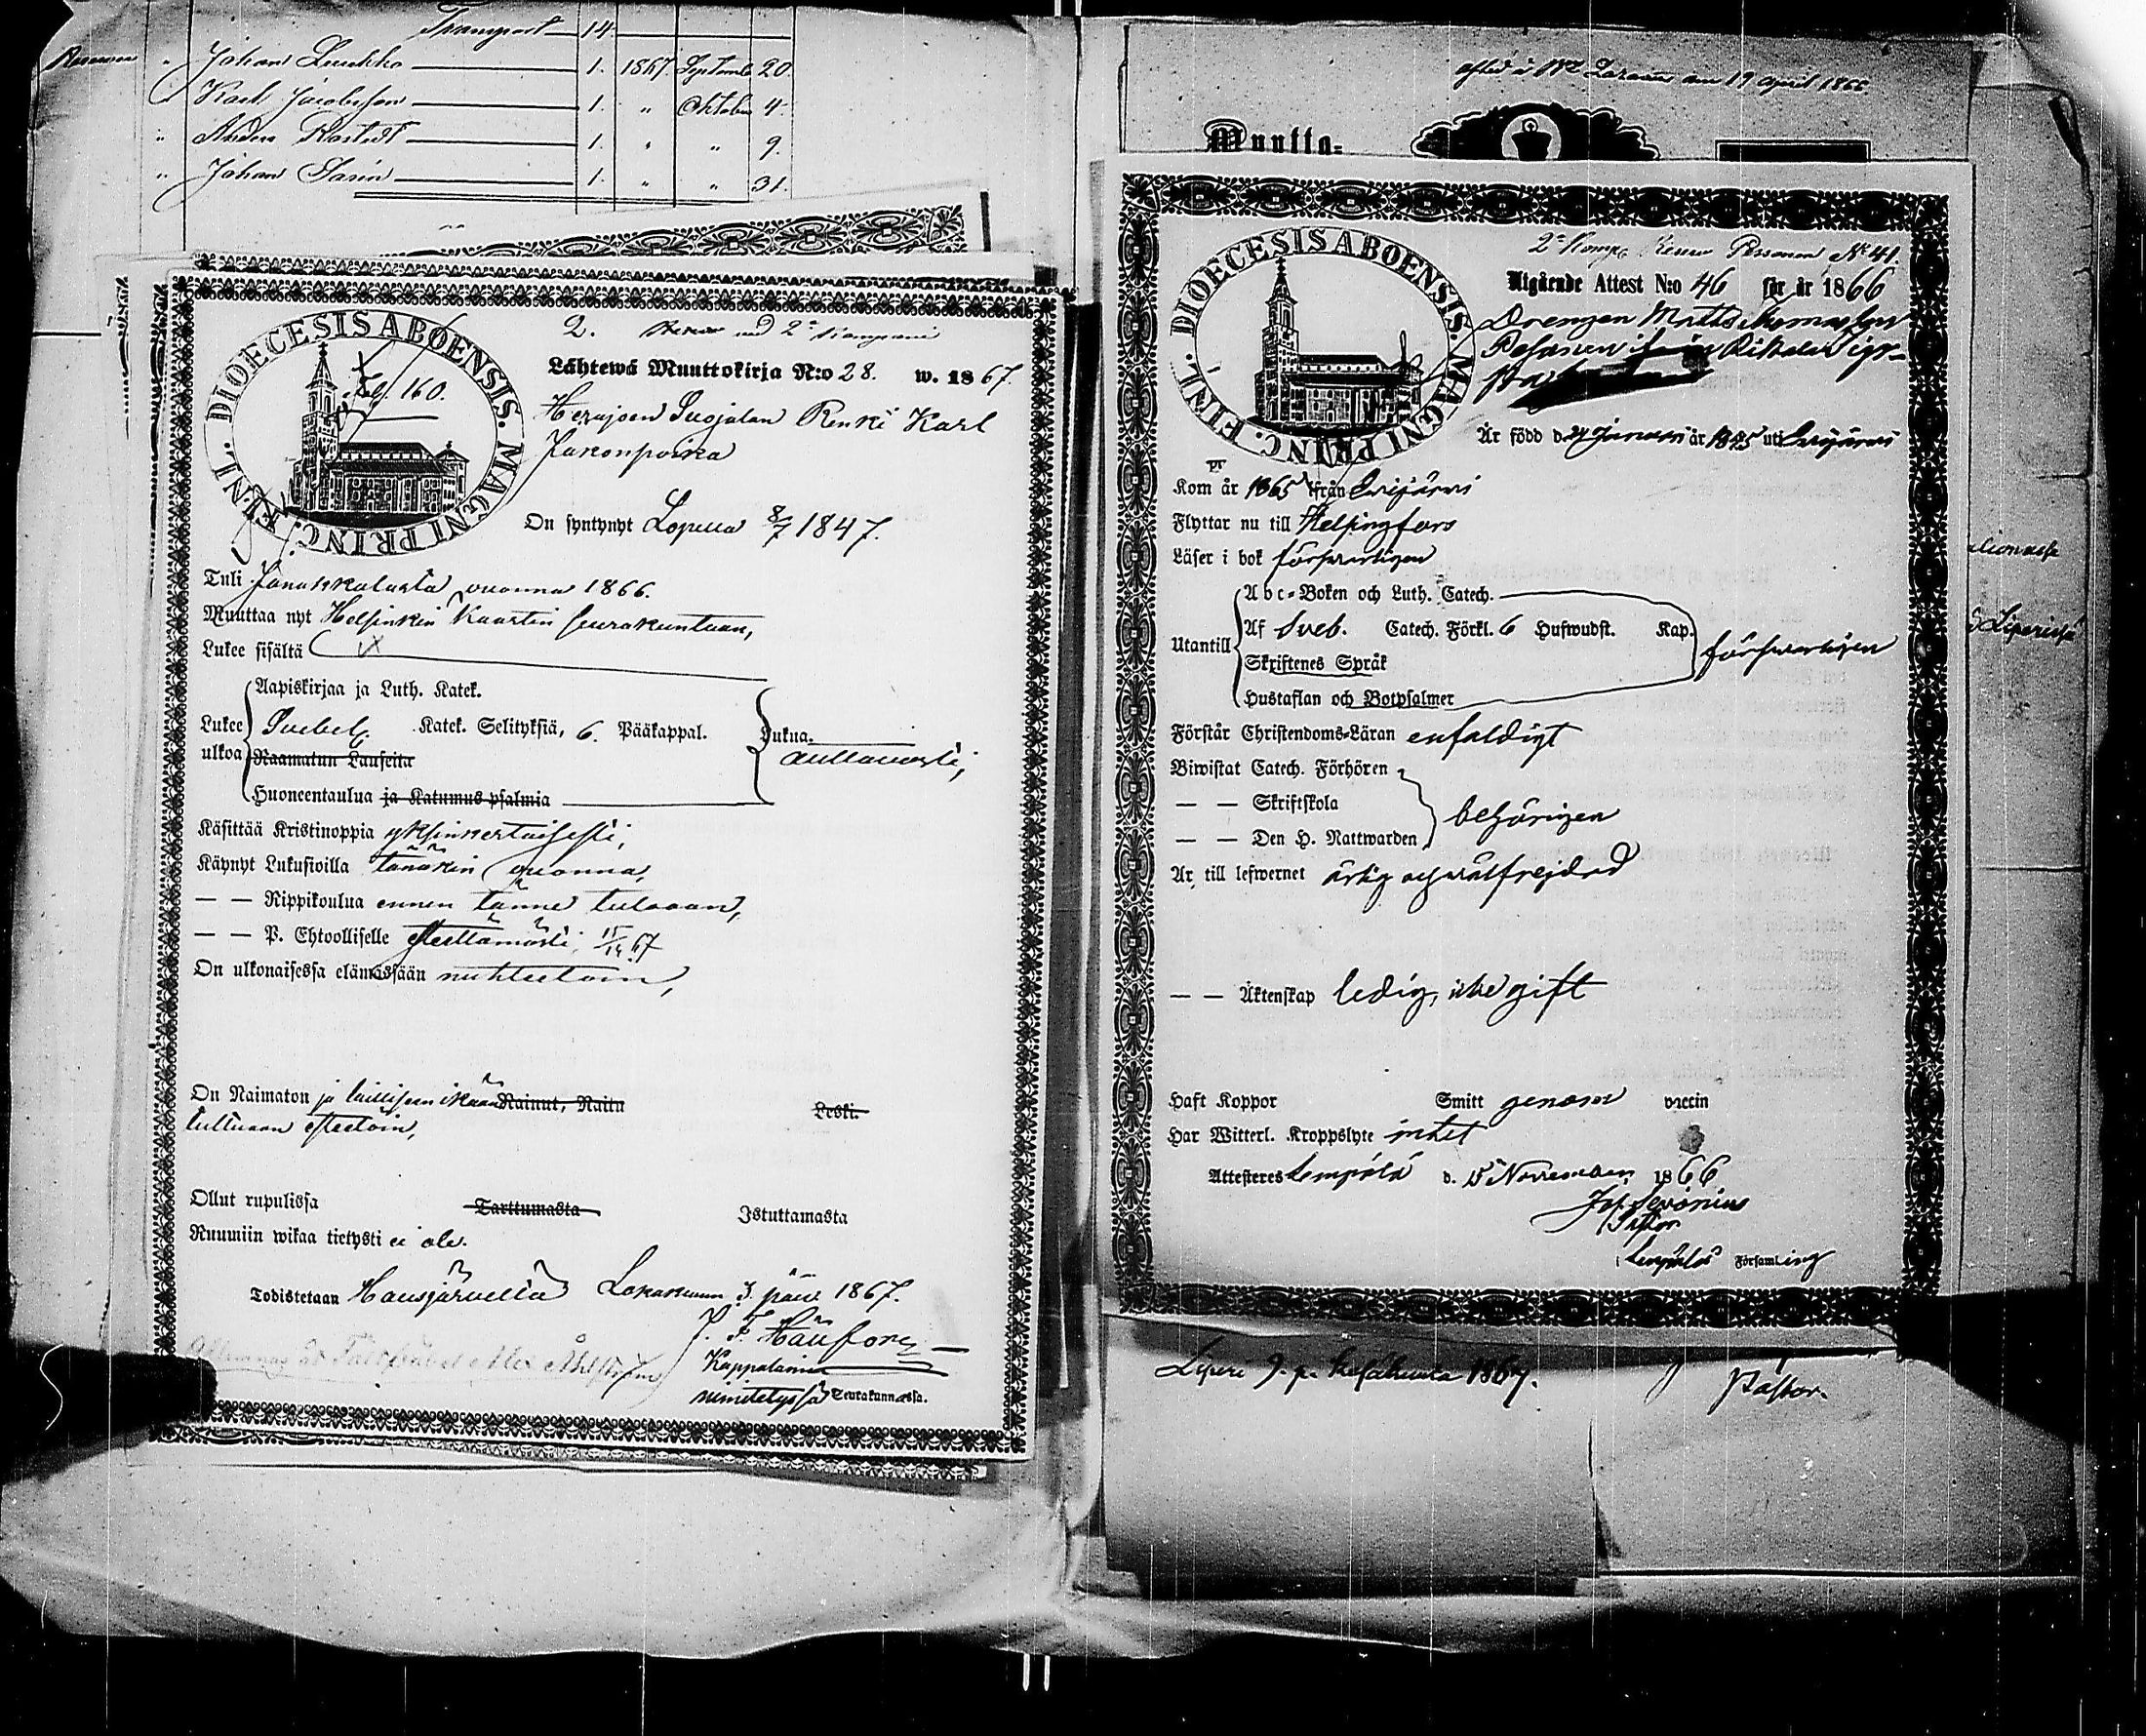 Transport 14.
" Johan Luukko 1. 1867 Septemb 20.
" Karl Jacobsson 1. " Oktober 4.
" Anders 1. " " 9.
" Johan Sarin 1. " " 31.
DIOECESIS ABOENSIS. MAGNI PRINC. FINL.
160.
2. 2a Kompani
Lähtewä Muuttokirja N:o 28. w. 1867.
Suojalan Renki Karl
Jakonpoika
On syntynyt Lopella 8/7 1847.
Tuli Janakkalasta vuonna 1866.
Muuttaa nyt Helsinkin Kaartin seurakuntaan,
Lukee sisältä
Aapiskirjaa ja Luth. Katek.
Lukee Svebel. Katek. Selityksiä, 6. Pääkappal. Lukua.
ulkoa Raamatun Lauseita auttavasti,
Huoneentaulua ja Katumus-psalmia
Käsittää Kristinoppia yksinkertaisesti,
Käynyt Lukusioilla tänäkin vuonna,
— — Rippikoulua ennen tänne tuloaan,
— — P. Ehtoolliselle esteettämästi, 67
On ulkonaisessa elämässään nuhteetoin,
On Naimaton ja lailliseen ikään Nainut, Naitu Leski.
tultuaan esteetöin,
Ollut rupulissa Tarttumasta Istuttamasta
Ruumiin wikaa tietysti ei ole.
Todistetaan Hausjärvellä Lokakuun 3. päiv 1867.
Kappalainen
nimitetyssä Seurakunnassa.
19 April 1866
Muutto-
DIOECESIS ABOENSIS. MAGNI PRINC. FINL.
2a Komp. N° 41.
Utgående Attest N:o 46 för år 1866
Drengen Matts Thomasson
Är född d. Januari år 1845 uti
Kom år 1865 ifrån
Flyttar nu till Helsingfors
Läser i bok försvarligen
Abc-Boken och Luth. Catech.
Utantill Af Sveb. Catech. Förkl. 6 Hufwudst. Kap. försvarligen
Skriftenes Språk
Hustaflan och Botpsalmer
Förstår Christendoms-Läran enfaldigt
Biwistat Catech. Förhören
— — Skriftskola behörigen
— — Den H. Nattwarden
Är till lefwernet ärlig och välfrejdad
— — Äktenskap ledig, icke gift
Haft Koppor Smitt genom vaccin
Har Witterl. Kroppslyte intet
Attesteres Lempälä d. 15 November 1866
i Lempälä Församling
Liperi 9. p. kesäkuuta 1867.
Pastor.